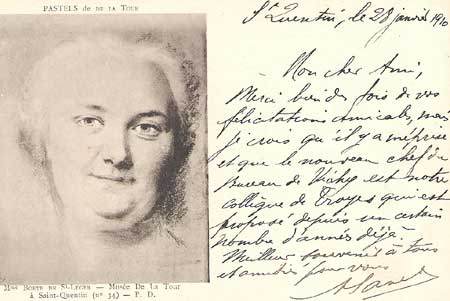 PASTELS de DE LA TOUR
Mme BOETE DE St-LEGER — MUSÉE DE LA TOUR
à SAINT-QUENTIN (n° 34) — P. D.
St Quentin, le 28 janvier 1910
Mon cher Ami,
Merci bien des fois de vos
félicitations amicales, mais
je crois qu'il y a méprise
et que le nouveau chef du
Bureau de Vichy est notre
collègue de Troyes qui est
proposé depuis un certain
nombre d'années déjà.
Meilleur souvenir à tous
et amitiés pour vous